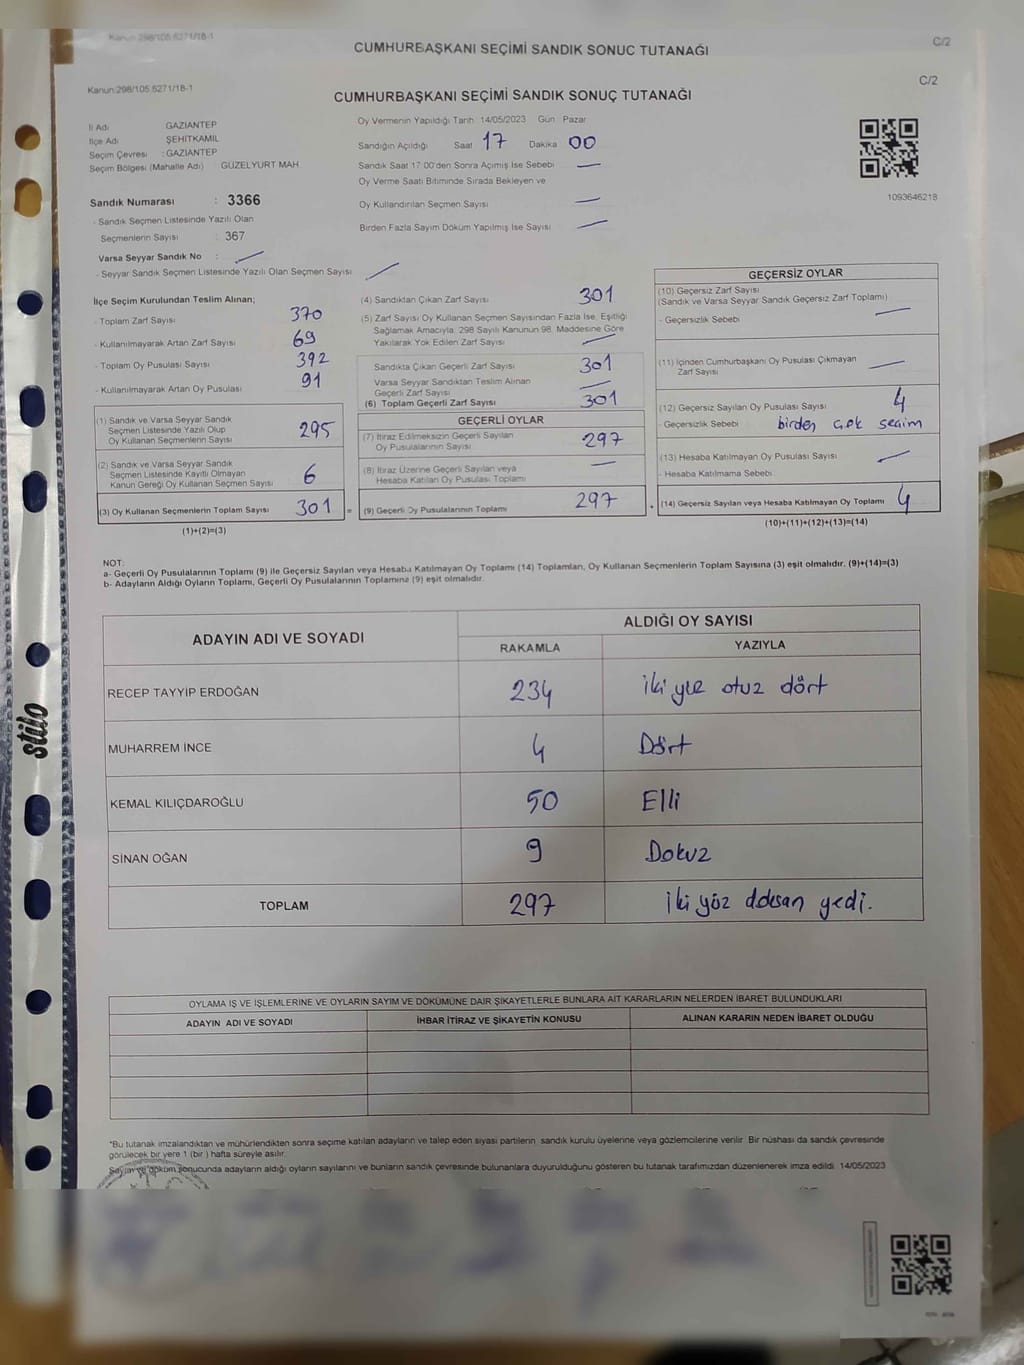 Kanun 298/105.6271/18-1
C/2
CUMHURBAŞKANI SEÇİMİ SANDIK SONUC TUTANAĞI
Kanun 298/105.6271/18-1
C/2
CUMHURBAŞKANI SEÇİMİ SANDIK SONUÇ TUTANAĞI
İl Adı GAZIANTEP
İlçe Adı ŞEHİTKAMİL
Seçim Çevresi : GAZIANTEP
Seçim Bölgesi (Mahalle Adı) GÜZELYURT MAH.
Sandık Numarası : 3366
- Sandık Seçmen Listesinde Yazılı Olan
Seçmenlerin Sayısı : 367
Varsa Seyyar Sandık No :
- Seyyar Sandık Seçmen Listesinde Yazılı Olan Seçmen Sayısı
Oy Vermenin Yapıldığı Tarih 14/05/2023 Gün Pazar
Sandığın Açıldığı Saat 17 Dakika 00
Sandık Saat 17:00'den Sonra Açımış İse Sebebi —
Oy Verme Saati Bitiminde Sırada Bekleyen ve
Oy Kullandırılan Seçmen Sayısı —
Birden Fazla Sayım Döküm Yapılmış İse Sayısı —
1093646218
İlçe Seçim Kurulundan Teslim Alınan;
- Toplam Zarf Sayısı 370
- Kullanılmayarak Artan Zarf Sayısı 69
- Toplam Oy Pusulası Sayısı 392
- Kullanılmayarak Artan Oy Pusulası 91
(1) Sandık ve Varsa Seyyar Sandık
Seçmen Listesinde Yazılı Olup
Oy Kullanan Seçmenlerin Sayısı 295
(2) Sandık ve Varsa Seyyar Sandık
Seçmen Listesinde Kayıtlı Olmayan
Kanun Gereği Oy Kullanan Seçmen Sayısı 6
(3) Oy Kullanan Seçmenlerin Toplam Sayısı 301 =
(1)+(2)=(3)
(4) Sandıktan Çıkan Zarf Sayısı 301
(5) Zarf Sayısı Oy Kullanan Seçmen Sayısından Fazla İse, Eşitliği
Sağlamak Amacıyla, 298 Sayılı Kanunun 98. Maddesine Göre
Yakılarak Yok Edilen Zarf Sayısı —
Sandıkta Çıkan Geçerli Zarf Sayısı 301
Varsa Seyyar Sandıktan Teslim Alınan
Geçerli Zarf Sayısı —
(6) Toplam Geçerli Zarf Sayısı 301
GEÇERLİ OYLAR
(7) İtiraz Edilmeksizin Geçerli Sayılan
Oy Pusulalarının Sayısı 297
(8) İtiraz Üzerine Geçerli Sayılan veya
Hesaba Katılan Oy Pusulası Toplamı —
(9) Geçerli Oy Pusulalarının Toplamı 297
GEÇERSİZ OYLAR
(10) Geçersiz Zarf Sayısı
(Sandık ve Varsa Seyyar Sandık Geçersiz Zarf Toplamı)
- Geçersizlik Sebebi —
(11) İçinden Cumhurbaşkanı Oy Pusulası Çıkmayan
Zarf Sayısı —
(12) Geçersiz Sayılan Oy Pusulası Sayısı 4
- Geçersizlik Sebebi birden çok seçim
(13) Hesaba Katılmayan Oy Pusulası Sayısı —
- Hesaba Katılmama Sebebi
(14) Geçersiz Sayılan veya Hesaba Katılmayan Oy Toplamı 4
(10)+(11)+(12)+(13)=(14)
NOT:
a- Geçerli Oy Pusulalarının Toplamı (9) ile Geçersiz Sayılan veya Hesaba Katılmayan Oy Toplamı (14) Toplamları, Oy Kullanan Seçmenlerin Toplam Sayısına (3) eşit olmalıdır. (9)+(14)=(3)
b- Adayların Aldığı Oyların Toplamı, Geçerli Oy Pusulalarının Toplamına (9) eşit olmalıdır.
ADAYIN ADI VE SOYADI ALDIĞI OY SAYISI
RAKAMLA YAZIYLA
RECEP TAYYİP ERDOĞAN 234 iki yüz otuz dört
MUHARREM İNCE 4 Dört
KEMAL KILIÇDAROĞLU 50 Elli
SİNAN OĞAN 9 Dokuz
TOPLAM 297 iki yüz doksan yedi.
stilo
OYLAMA İŞ VE İŞLEMLERİNE VE OYLARIN SAYIM VE DÖKÜMÜNE DAİR ŞİKAYETLERLE BUNLARA AİT KARARLARIN NELERDEN İBARET BULUNDUKLARI
ADAYIN ADI VE SOYADI İHBAR İTİRAZ VE ŞİKAYETİN KONUSU ALINAN KARARIN NEDEN İBARET OLDUĞU
*Bu tutanak imzalandıktan ve mühürlendikten sonra seçime katılan adayların ve talep eden siyası partilerin sandık kurulu üyelerine veya gözlemcilerine verilir. Bir nüshası da sandık çevresinde
görülecek bir yere 1 (bir) hafta süreyle asılır.
Sayım ve döküm sonucunda adayların aldığı oyların sayılarını ve bunların sandık çevresinde bulunanlara duyurulduğunu gösteren bu tutanak tarafımızdan düzenlenerek imza edildi. 14/05/2023